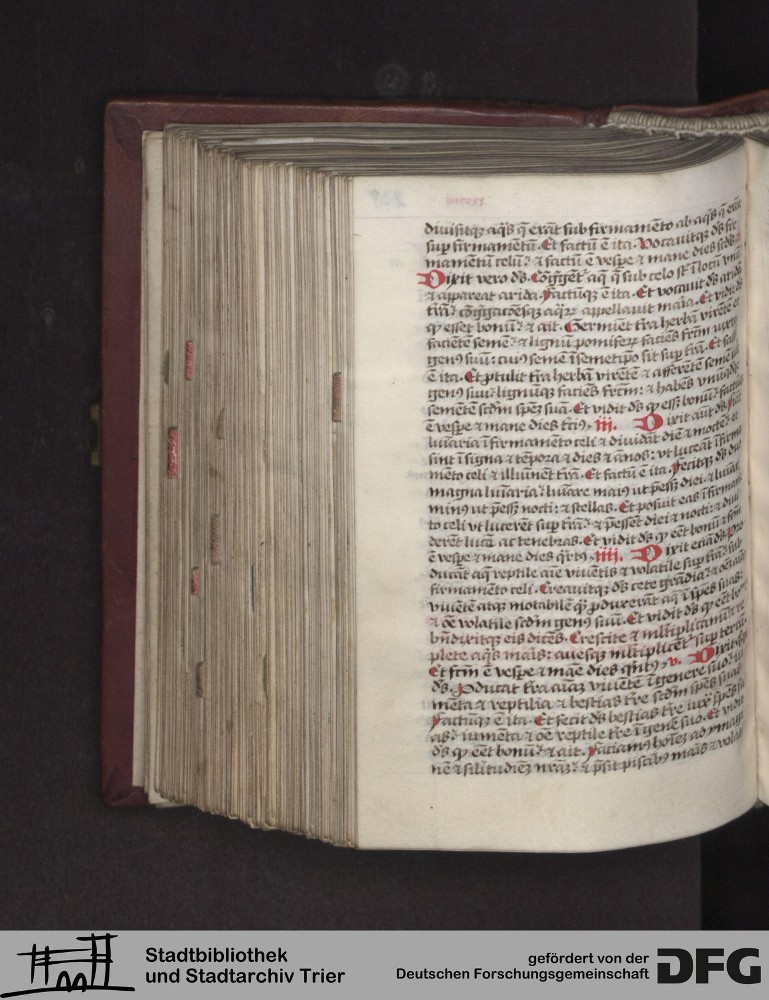 diuisitqꝫ aq̄s q̄ erāt sub firmamēto ab aq̄s q̄ erāt
sup firmamētū. Et factū ē ita. Vocauitqꝫ ds fir
mamētū celū: ⁊ factū ē vespe ⁊ mane dies scds
Dixit vero ds. Cōg̃gēt̃ aq̄ q̄ sub celo st̄ ī locū vnū
⁊ appareat arida. Factūqꝫ ē ita. Et vocauit ds aridā
t̃rā: cōg̃gacōesqꝫ aq̄rꝝ appellauit maria. Et vidit ds
qꝙ esset bonū: ⁊ ait. Germiet t̃ra herbā virētē et
faciētē semē: ⁊ lignū pomiferꝝ faciēs frc̄m iuxta
genꝯ suū: cuiꝯ semē ī semetip̄o sit sup t̃rā. Et fac̄
ē ita. Et ꝓtulit t̃ra herbā virētē ⁊ afferētē semē
genꝯ suū: lignūqꝫ faciēs frc̄m: ⁊ habēs vnūqdqꝫ
semētē scdm spēꝫ suā. Et vidit ds qꝙ eēt bonū: factūqꝫ
ē vespe ⁊ mane dies t̃ciꝯ. iij. Dixit aūt ds. Fiāt
luīaria ī firmamēto celi ⁊ diuidāt diē ⁊ noctē: et
sint ī signa ⁊ tēpora ⁊ dies ⁊ ānos: vt luceāt ī firma
mēto celi ⁊ illuīnēt t̃rā. Et factū ē ita. Fecitqꝫ ds duo
magna luīaria: luīare maiꝯ ut p̄ēēt diei ⁊ luīare
minꝯ ut p̄ēēt nocti: ⁊ stellas. Et posuit eas ī firmamē
to celi vt lucerēt sup t̃rā: ⁊ p̄ēēnt diei ⁊ nocti: ⁊ diui
derēt lucē ac tenebras. Et vidit ds qꝙ eēt bonū ⁊ fc̄m
ē vespe ⁊ mane dies q̃rtꝯ. iiij. Dixit eciā ds. Pro
ducāt aq̄ reptile aīe viuētis ⁊ volatile sup t̃rā: sub
firmamēto celi. Creauitqꝫ ds cete grādia: ⁊ oēm aīaꝫ
viuētē atqꝫ motabilē q̄ꝫ ꝓduxerāt aq̄ ī spēs suas:
⁊ oē volatile scdm genꝯ suū. Et vidit ds qꝙ eēt bonū
bn̄dixitqꝫ eis dicēs. Crescite ⁊ mltiplicamī: ⁊ re
plete aq̄s maīs: auesqꝫ mltiplicēt̃ sup terrā.
Et fc̄m ē vespe ⁊ mane dies qntꝯ. v. Dixit qꝫ
ds. Ꝓducat t̃ra aīaꝫ viuētē ī genere suo: iu
mēta ⁊ reptilia ⁊ bestias t̃re scdm spēs suas
Factūqꝫ ē ita. Et fecit ds bestias t̃re iux̃ spēs su
as: iumēta ⁊ oē reptile t̃re ī genē suo. Et vidit
ds qꝙ eēt bonū: ⁊ ait. Faciamꝯ hoīeꝫ ad ymagi
nē ⁊ silitudiēꝫ nr̄aꝫ: ⁊ p̄sit piscibꝯ maīs ⁊ volati
Stadtbibliothek
und Stadtarchiv Trier
gefördert von der
Deutschen Forschungsgemeinschaft
DFG